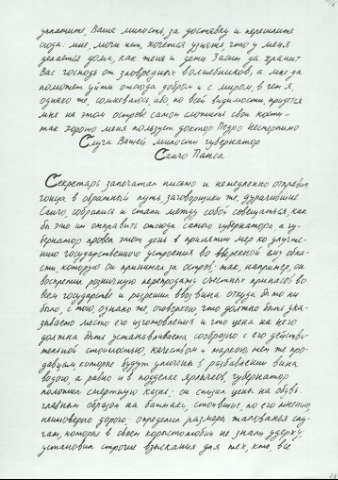 уплатите, Ваша милость, за доставку и перешлите
сюда: мне, мочи нет, хочется узнать, что у меня
делается дома, как жена и дети. Засим да хранит
Вас господь от зловредных волшебников, а мне да
поможет уйти отсюда добром и с миром, в чем я,
однако же, сомневаюсь, ибо, по всей видимости, придется
мне на этом острове самом сложить свои кости –
так здорово меня пользует доктор Педро Нестерпимо
Слуга Вашей милости губернатор
Санчо Панса
Секретарь запечатал письмо и немедленно отправил
гонца в обратный путь, заговорщики же, дурачившие
Санчо, собрались и стали между собой совещаться, как
бы это им отправить отсюда самого губернатора, а гу-
бернатор провел этот день в принятии мер ко улучше-
нию государственного устроения во вверенной ему обла-
сти, которую он принимал за остров: так, например, он
воспретил розничную перепродажу съестных припасов во
всем государстве и разрешил ввоз вина откуда бы то ни
было, с тою, однако же, оговоркою, что должно быть ука-
зываемо место его изготовления и что цена на него
должна быть устанавливаема сообразно с его действи-
тельной стоимостью, качеством и маркою, тем же про-
давцам, которые будут уличены в разбавлении вина
водою, а равно и в подделке ярлыков, губернатор
положил смертную казнь; он снизил цены на обувь,
главным образом на башмаки, стоившие, по его мнению,
неимоверно дорого; определил размеры жалованья слу-
гам, которые в своем корыстолюбии не знали удержу;
установил строгие взыскания для тех, кто, все